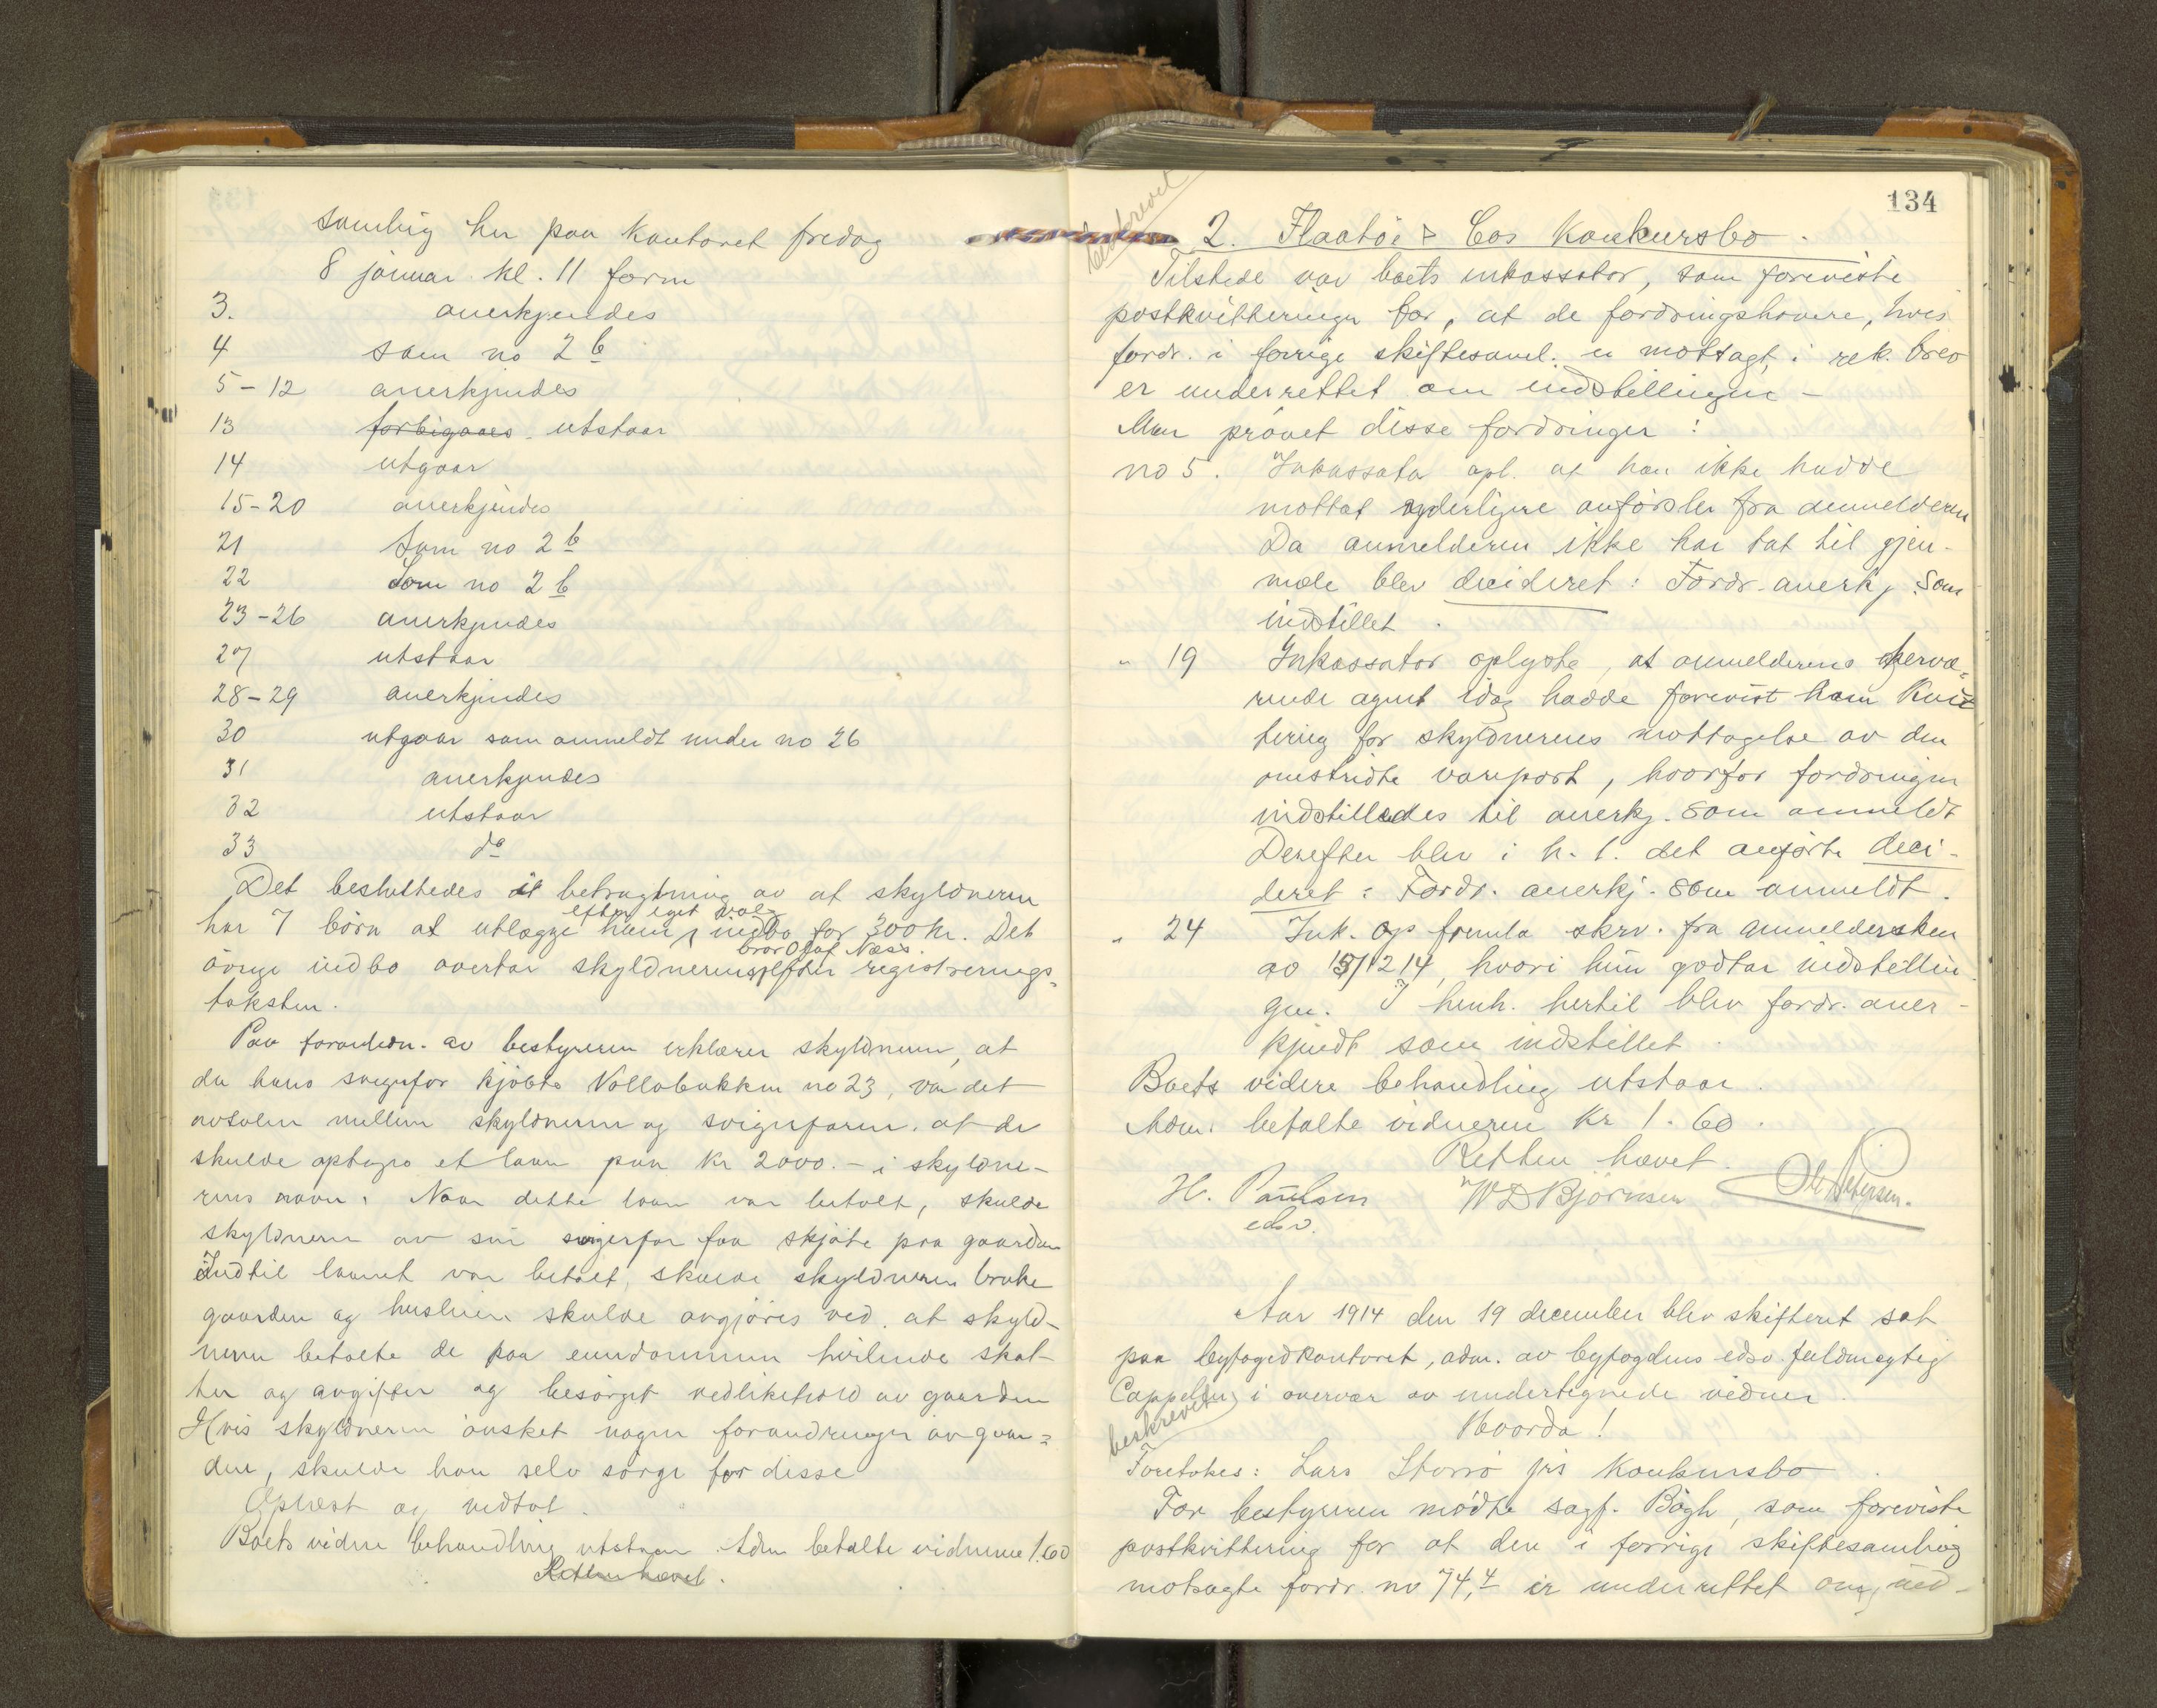 samling her paa kontoret fredag
8 januar kl. 11 form
3. anerkjendes
4 som no 2 b
5-12 anerkjendes
13 forbigaaes utstaar
14 utgaar
15-20 anerkjendes
21 Som no 2 b
22 Som no 2 b
23-26 anerkjendes
27 utstaar
28-29 anerkjendes
30 utgaar som anmeldt under no 26
31 anerkjendes
32 utstaar
33 do
Det besluttedes i betragtning av at skyldneren
efter eget valg
har 7 börn at utlægge ham indbo for 300 kr. Det
bror Olaf Næss
övrige indbo overtar skyldnerens efter registrerings-
taksten.
Paa foranledn. av bestyreren erklærer skyldneren, at
da hans svigerfar kjöbte Vollabakken no 23, var det
avtalen mellem skyldneren og svigerfaren, at de
skulde optages et laan paa kr 2000.- i skyldne-
rens navn. Naar dette laan var betalt, skulde
skyldneren av sin svigerfar faa skjöte paa gaarden
Indtil laanet var betalt, skulde skyldneren bruke
gaarden og husleien skulde avgjöres ved, at skyld-
neren betalte de paa eiendommen hvilende skat-
ter og avgifter og besörget vedlikehold av gaarden
Hvis skyldneren önsket nogen forandringer av gaar-
den, skulde han selv sörge for disse
Oplæst og vedtat.
Boets videre behandling utstaar. Adm betalte vidnerne 1.60
Retten hævet.
134
beskrevet
2. Flaatöi & Cos Konkursbo.
Tilstede var boets inkassator, som foreviste
postkvitteringer for, at de fordringshavere, hvis
fordr. i forrige skiftesaml. er motsagt, i rek. brev
er underrettet om indstillingen -
Man prövet disse fordringer:
no 5. Inkassator opl. at han ikke hadde
mottat yderligere anförsler fra anmelderen
Da anmelderen ikke har tat til gjen-
mæle blev decideret: Fordr. anerkj. som
indstillet.
" 19 Inkassator oplyste, at anmelderens herva-
rende agent idag hadde forevist ham kvit
tering for skyldnerens mottagelse av den
omstridte vareport, hvorfor fordringen
indstilledes til anerkj. som anmeldt
Derefter blev i h. t. det anförte deci-
deret: Fordr. anerkj. som anmeldt.
" 24 Ink. op fremla skrv. fra anmeldersken
av 15/12 14, hvori hun godtar indstillin
gen. I henh. hertil blev fordr. aner-
kjendt som indstillet.
Boets videre behandling utstaar.
Adm. betalte vidnerne Kr 1.60.
Retten hævet.
H. Paulsen W D Björnsen Ole Petersen.
edsv.
Aar 1914 den 19 december blev skifteret sat
paa byfogedkontoret, adm. av byfogdens edsv. fuldmegtig
Cappelen, i overvær av undertegnede vidner.
Hvorda!
beskrevet
Foretokes: Lars Storrö jrs Konkursbo.
For bestyreren mödte sagf. Bögh, som foreviste
postkvittering for at den i forrige skiftesamling
motsagte fordr. no 74, 4 er underrettet om ind-